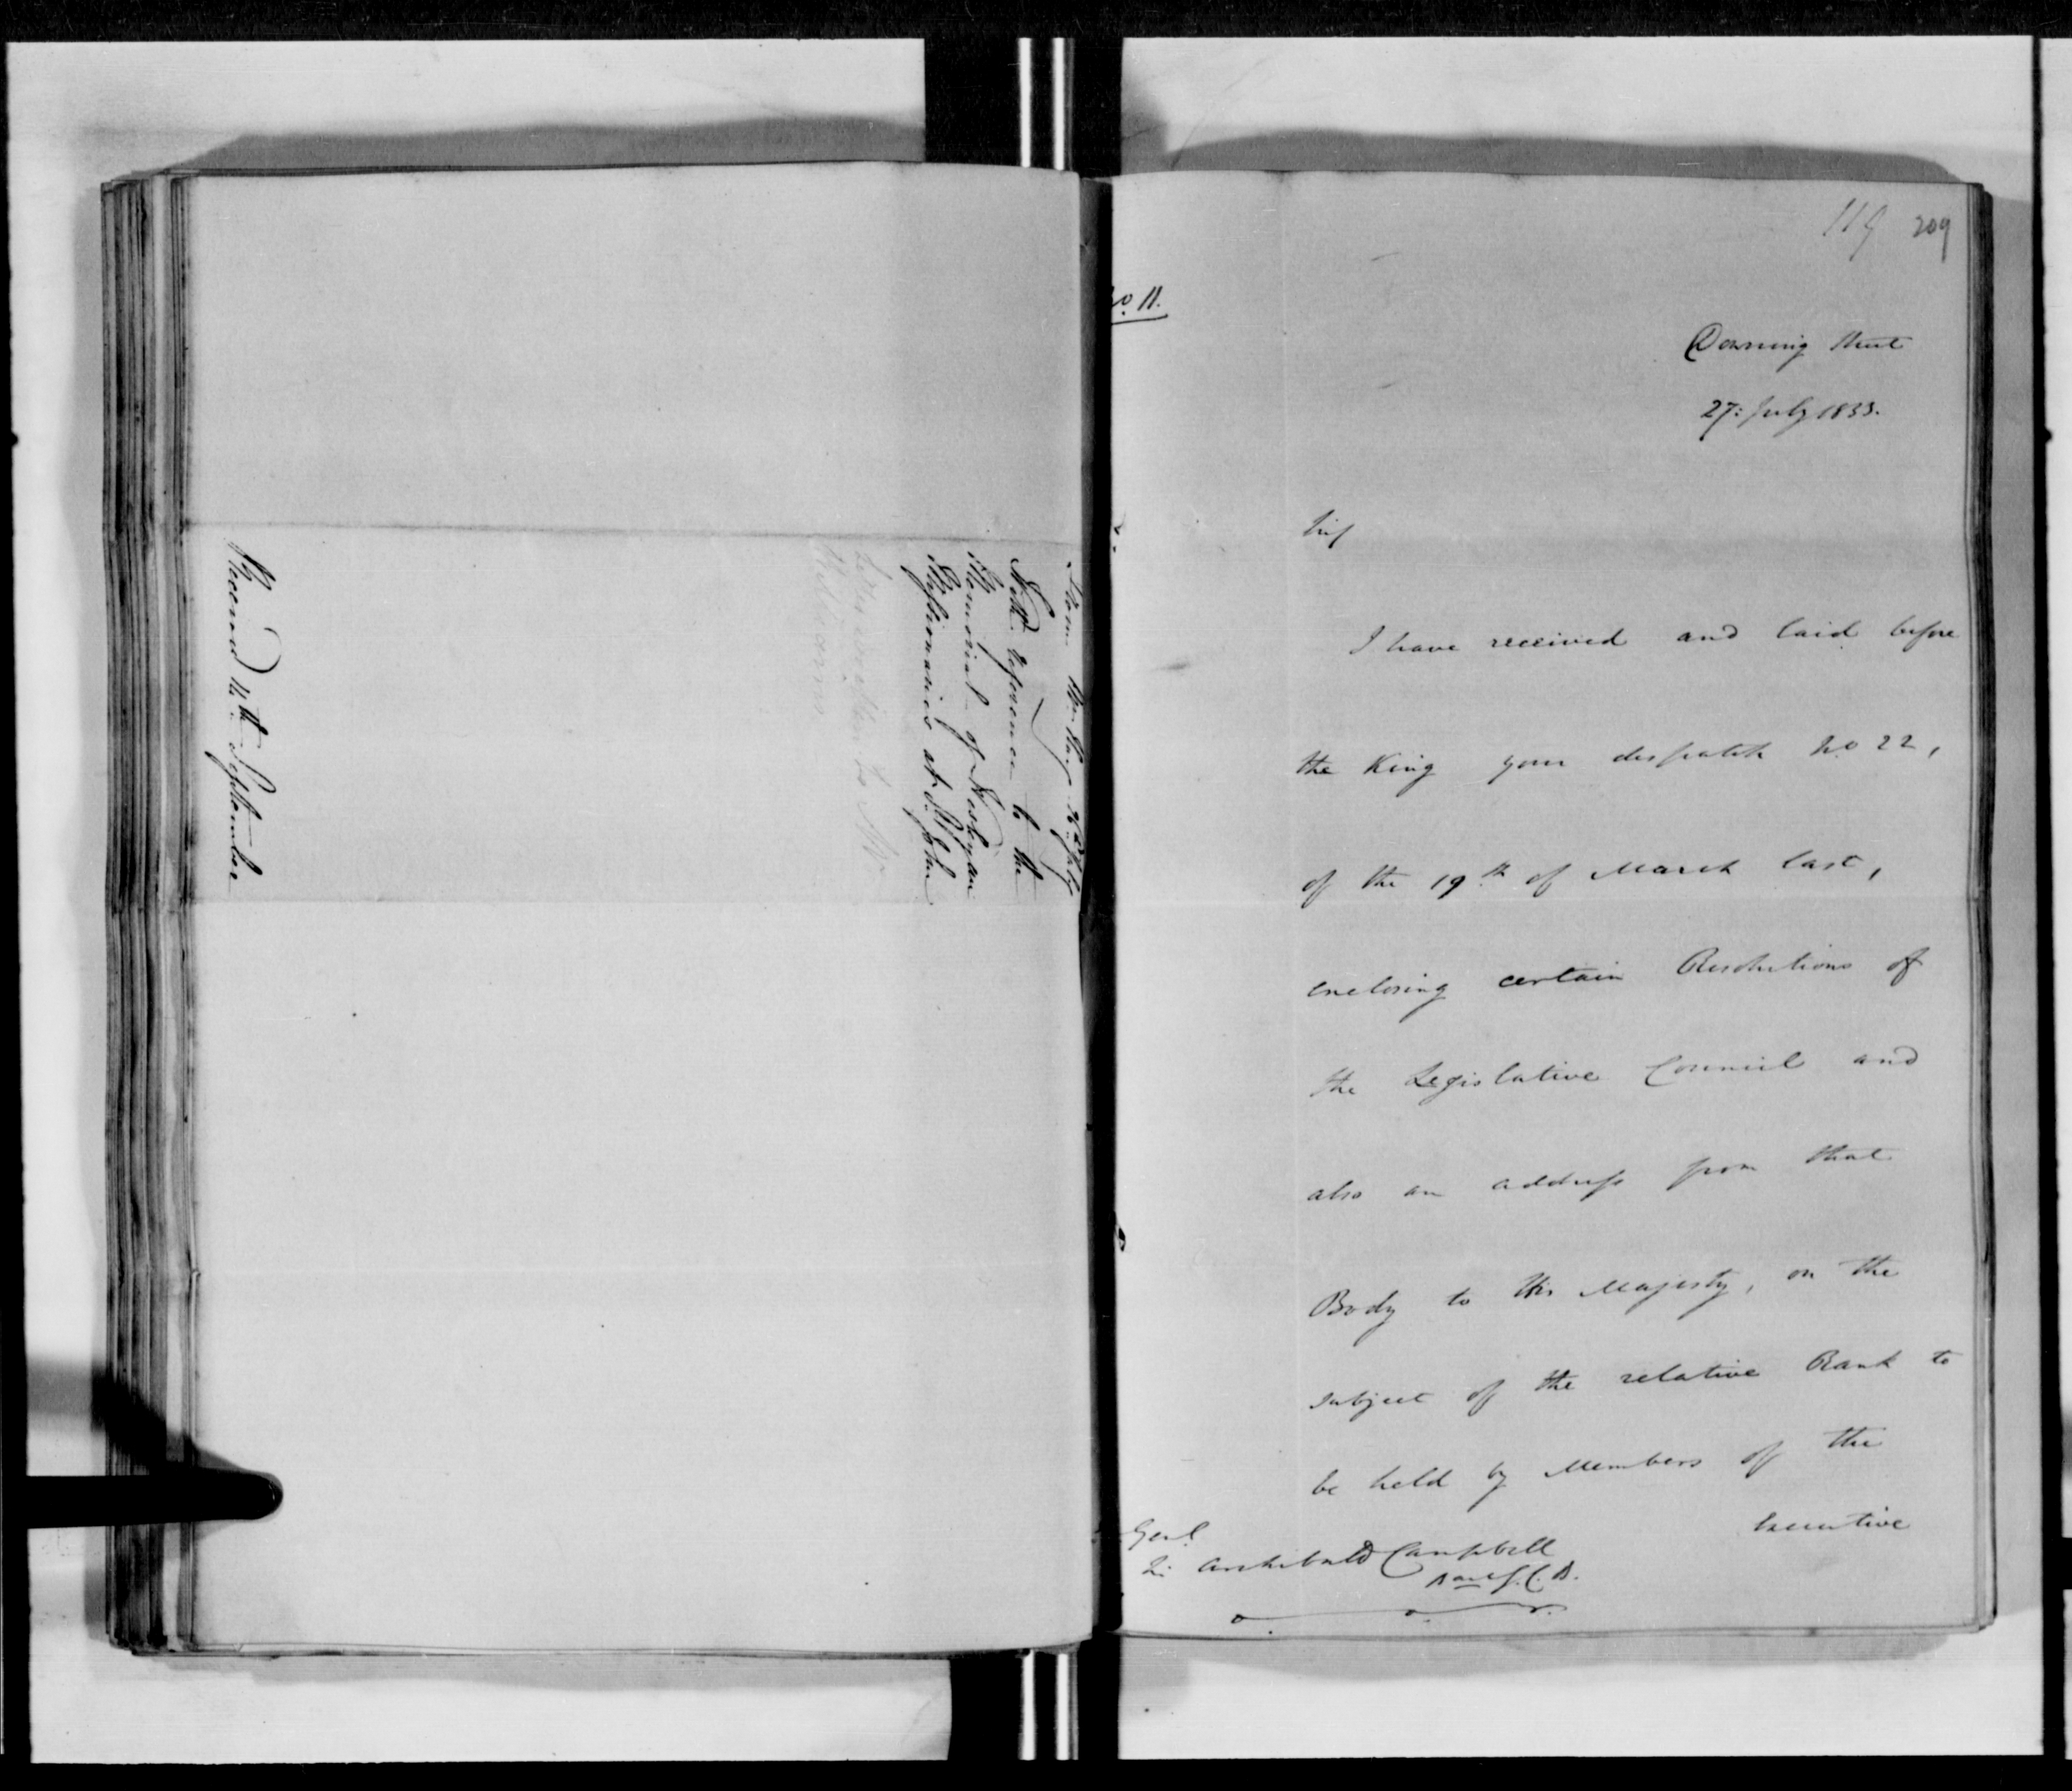 From Mr Hay 26th July
With reference to the
Memorial of Wesleyan
Missionaries at St John
Received 14th September
119 209
No. 11.
Downing Street
27: July 1833.
Sir
I have received and laid before
the King your despatch No 22,
of the 19th of March last,
enclosing certain Resolutions of
the Legislative Council and
also an address from that
Body to His Majesty, on the
subject of the relative Rank to
be held by Members of the
Executive
Genl
Sir Archibald Campbell
Bart G.C.B.